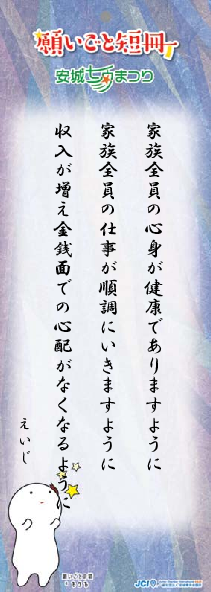 願いごと短冊
安城七夕まつり
家族全員の心身が健康でありますように
家族全員の仕事が順調にいきますように
収入が増え金銭面での心配がなくなるように
えいじ
JCI